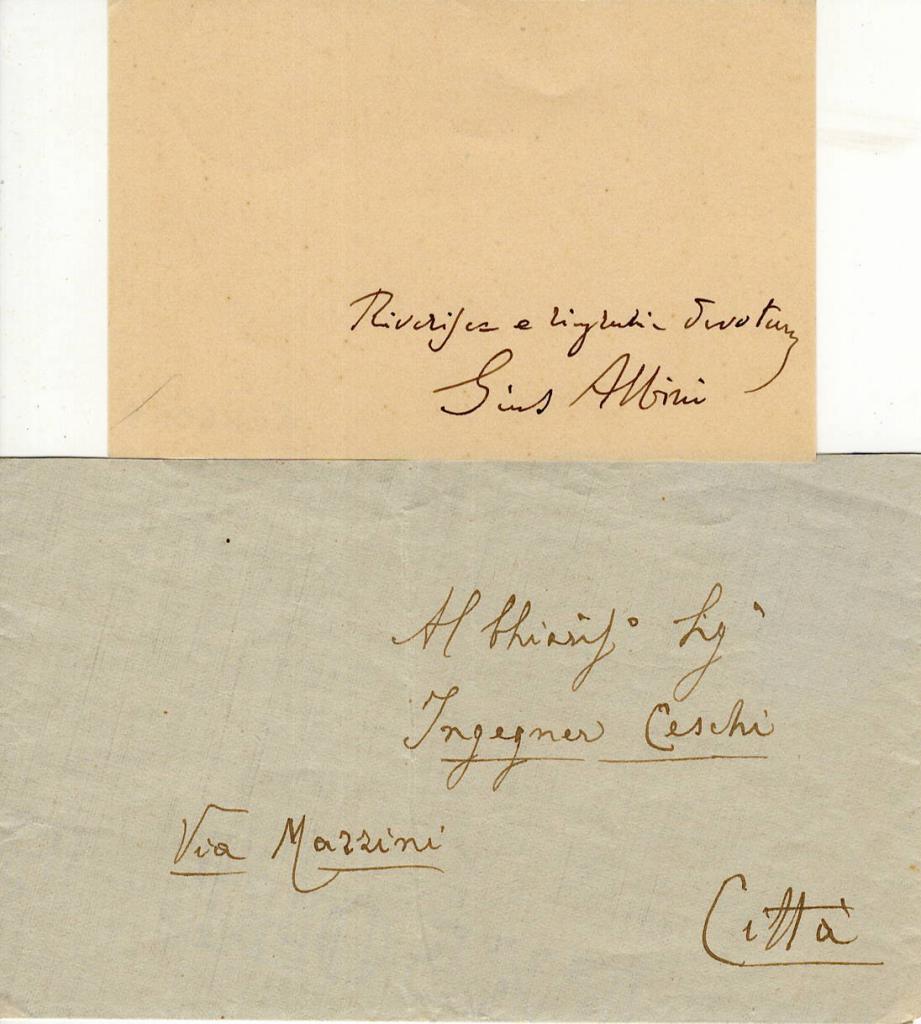 Riverisce e ringrazia devotam
Gius Albini
Al Chiariss.º Sigʳ
Ingegner Ceschi
Via Mazzini
Città